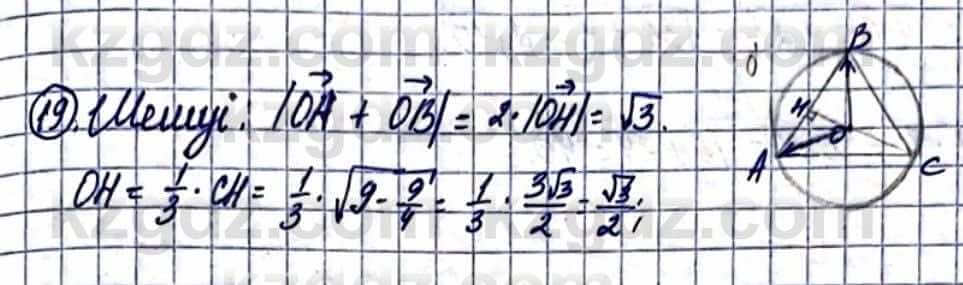 kzgdz.com
19. Шешуі: |OA→ + OB→| = 2·|OH→| = √3.
OH = 1/3 · CH = 1/3 · √(9 - 9/4) = 1/3 · 3√3/2 = √3/2;
B
H
O
A
C